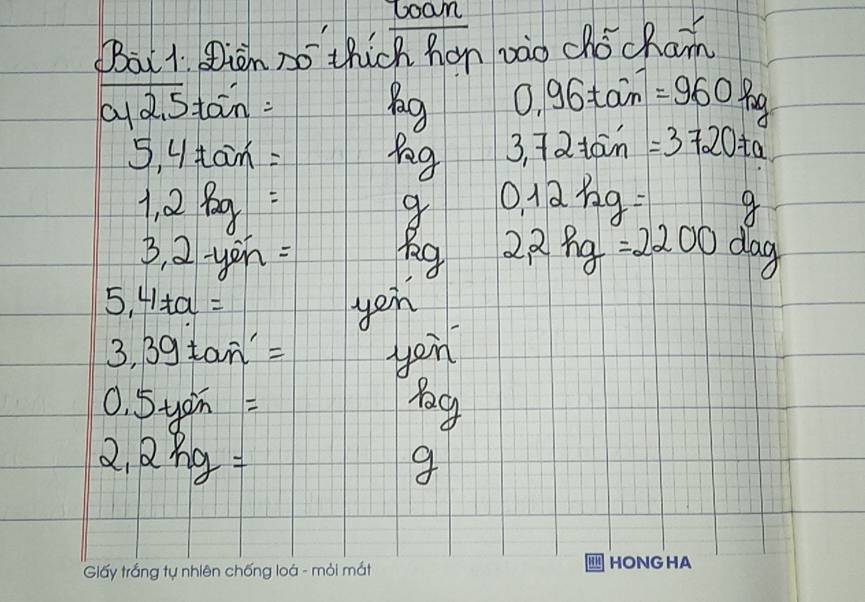 toán
Bài 1: Điền số thích hợp vào chỗ chấm
a) 2,5 tấn = kg 0,96 tấn = 960 kg
5,4 tấn = kg 3,72 tấn = 3720 tạ
1,2 kg = g 0,12 hg = g
3,2 yến = kg 2,2 hg = 2200 dag
5,4 tạ = yến
3,39 tấn = yến
0,5 yến = kg
2,2 hg = g
Giấy trắng tự nhiên chống loá - mỏi mắt HONG HA